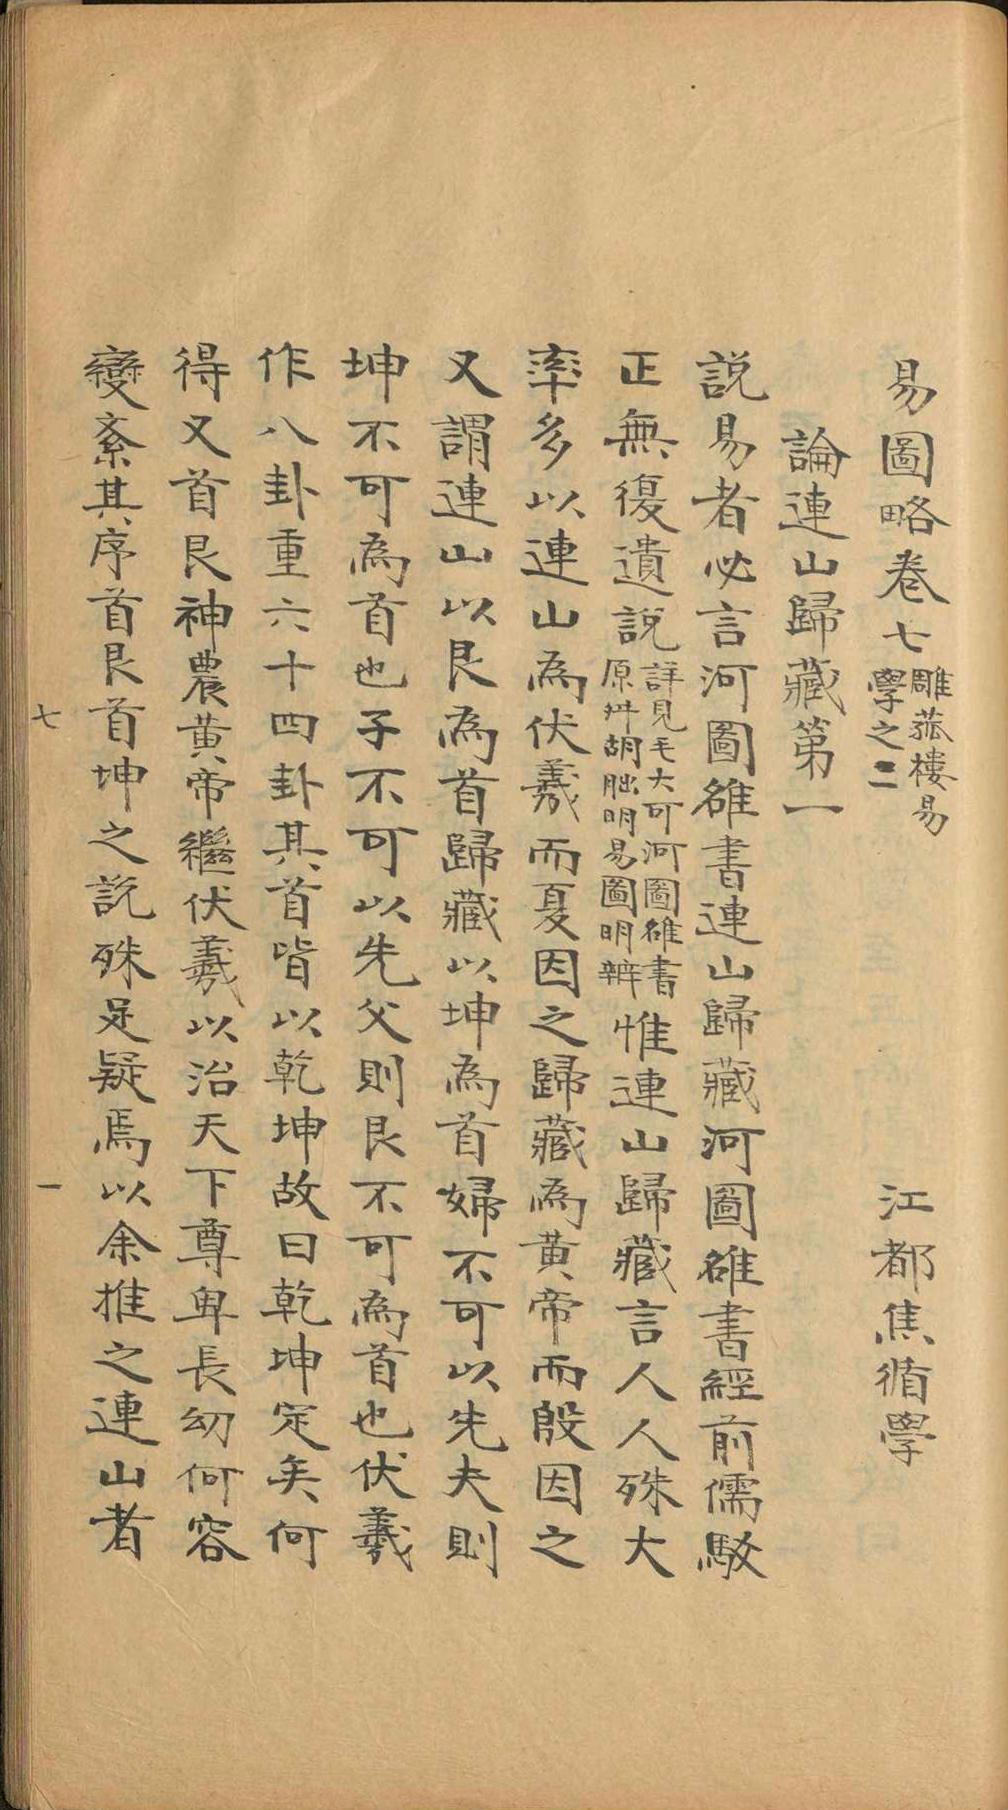 易圖略卷七 雕菰樓易學之二 江都焦循學
論連山歸藏第一
說易者必言河圖雒書連山歸藏河圖雒書經前儒駁
正無復遺說詳見毛大可河圖雒書原舛胡朏明易圖明辨惟連山歸藏言人人殊大
率多以連山為伏羲而夏因之歸藏為黃帝而殷因之
又謂連山以艮為首歸藏以坤為首婦不可以先夫則
坤不可為首也子不可以先父則艮不可為首也伏羲
作八卦重六十四卦其首皆以乾坤故曰乾坤定矣何
得又首艮神農黃帝繼伏羲以治天下尊卑長幼何容
變紊其序首艮首坤之說殊足疑焉以余推之連山者
七 一